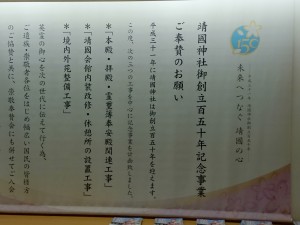 150
未来へつなぐ 靖國の心
靖國神社御創立百五十年記念事業
ご奉賛のお願い
平成三十一年に靖國神社は御創立百五十年を迎えます。
この度、次の三つの工事を中心に記念事業を計画致しました。
＊「本殿・拝殿・霊璽簿奉安殿関連工事」
＊「靖國会館内装改修・休憩所の設置工事」
＊「境内外苑整備工事」
英霊の御心を次の世代に伝えて行く為、
ご遺族・崇敬者各位をはじめ幅広い国民の皆様方
のご協賛と共に、崇敬奉賛会にも併せてご入会